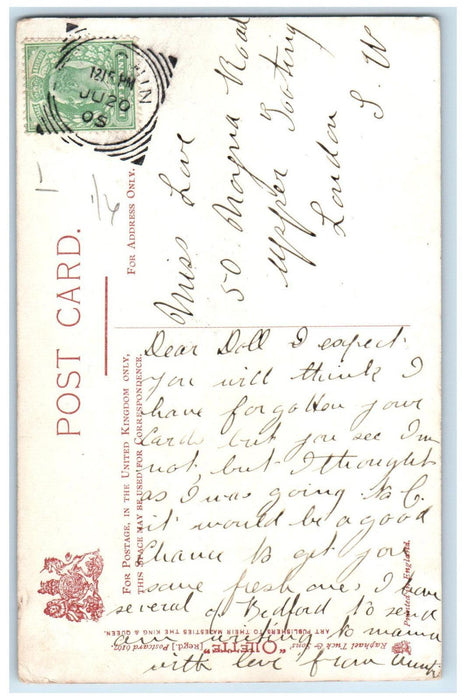 12.15 PM
JU 20
05
POST CARD.
FOR ADDRESS ONLY.
Miss Love
50 Moyna Road
Upper Tooting
London S.W
FOR POSTAGE, IN THE UNITED KINGDOM ONLY,
THIS SPACE MAY BE USED FOR CORRESPONDENCE.
Dear Doll I expect
you will think I
have forgotten your
Cards but you see I'm
not, but I thought
as I was going to C.
it would be a good
Chance to get you
some fresh ones, I have
several of Bedford to send
am writing to mama
with love from Aunt
Raphael Tuck & Sons'
"OILETTE" [Regd.] Postcard
ART PUBLISHERS TO THEIR MAJESTIES THE KING & QUEEN.
Printed in England.